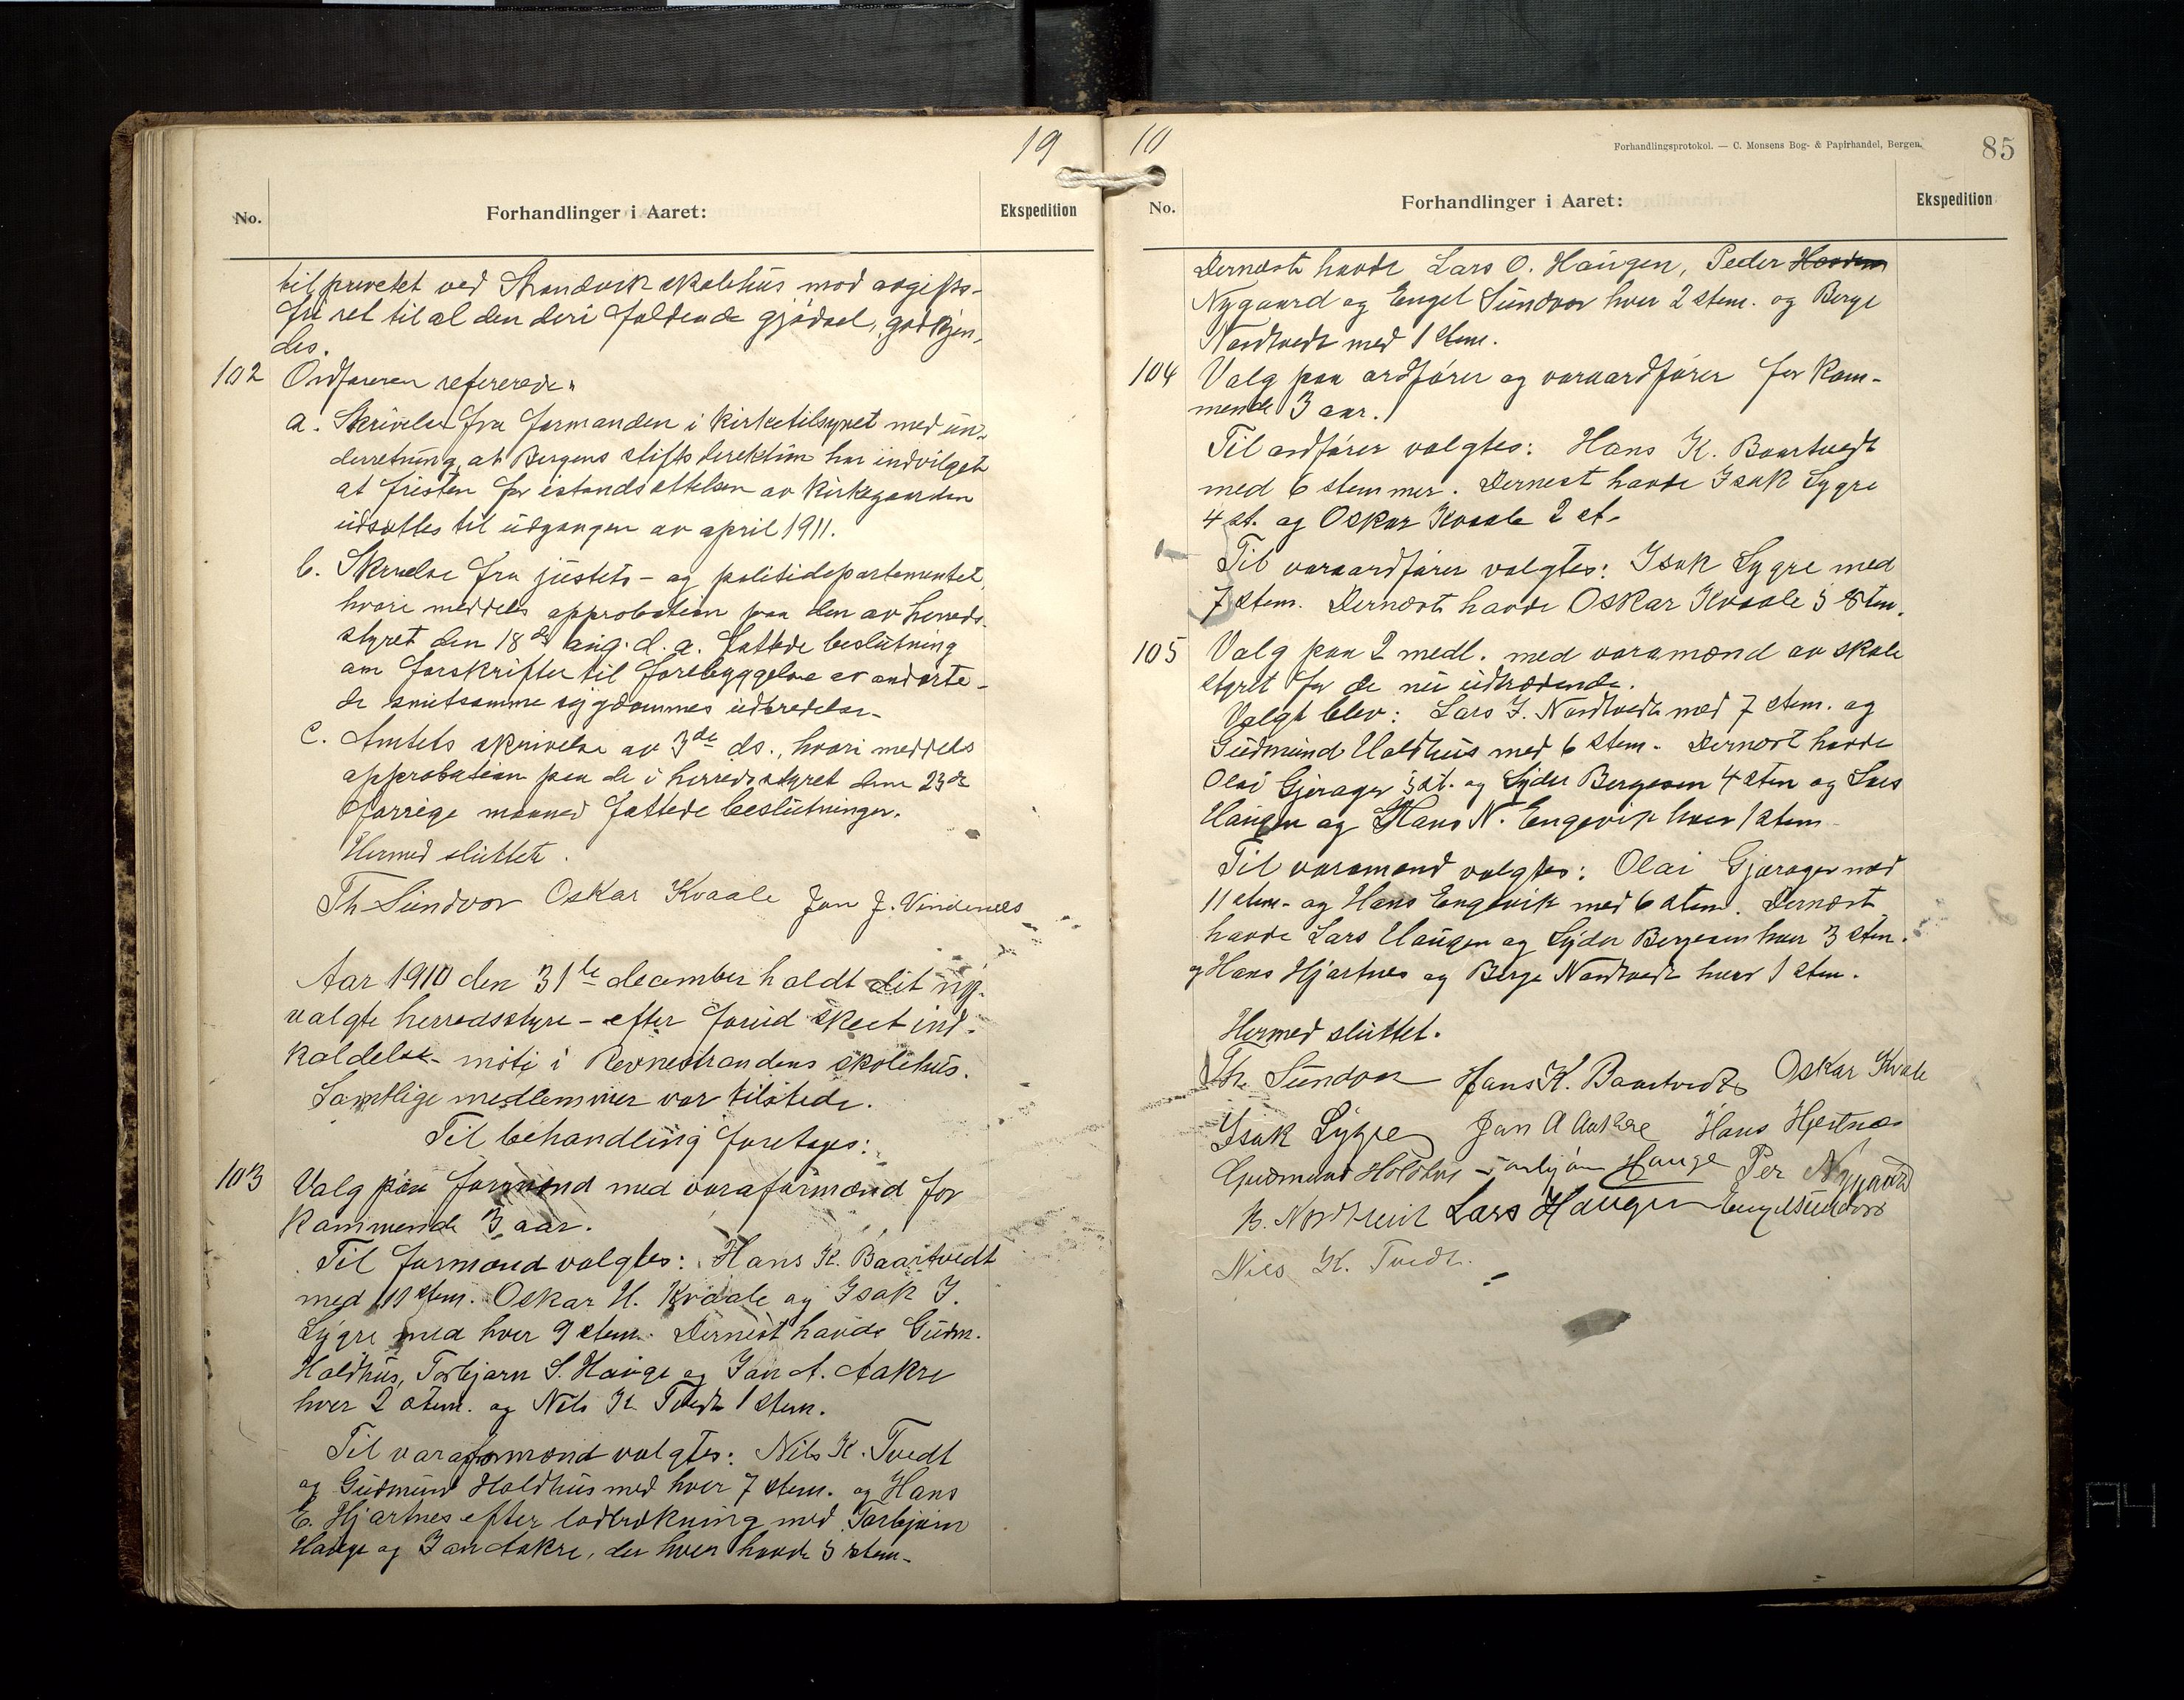 19
No.
Forhandlinger i Aaret:
Ekspedition
til privetet ved Strandvik skolehus mod avgifts-
fri ret til al den deri faldende gjødsel, godkjen-
des.
102 Ordføreren refererede:
a. Skrivelse fra formanden i kirketilsynet med un-
derretning, at Bergens stiftsdirektion har indvilget
at fristen for istandsættelsen av kirkegaarden
udsættes til udgangen av april 1911.
b. Skrivelse fra justits- og politidepartementet,
hvori meddeles approbation paa den av herreds-
styret den 18de aug. d. a. fattede beslutning
om forskrifter til forebyggelse av ondarte-
de smitsomme sygdommes udbredelse.
c. Amtets skrivelse av 3de ds., hvori meddeles
approbation paa de i herredsstyret den 23de
forrige maaned fattede beslutninger.
Hermed sluttet.
Th. Sundvor Oskar Kvaale Jon J. Vindenes
Aar 1910 den 31te december holdt det ny-
valgte herredsstyre - efter forud skeet ind-
kaldelse - møte i Revnestrandens skolehus.
Samtlige medlemmer var tilstede.
Til behandling foretoges:
103 Valg paa formænd med varaformænd for
kommende 3 aar.
Til formænd valgtes: Hans K. Baartvedt
med 11 stem. Oskar H. Kvaale og Isak J.
Lygre med hver 9 stem. Dernest havde Gudm.
Holdhus, Torbjørn S. Hauge og Jan A. Aakre
hver 2 stem. og Nils K. Tvedt 1 stem.
Til varaformænd valgtes: Nils K. Tvedt
og Gudmund Holdhus med hver 7 stem. og Hans
E. Hjartnes efter lodtrækning med Torbjørn
Hauge og Jan Aakre, der hver havde 5 stem.
10
Forhandlingsprotokol. — C. Monsens Bog- & Papirhandel, Bergen.
85
No.
Forhandlinger i Aaret:
Ekspedition
Dernæst havde Lars O. Haugen, Peder
Nygaard og Engel Sundvor hver 2 stem. og Berge
Nordtvedt med 1 stem.
104 Valg paa ordfører og varaordfører for kom-
mende 3 aar.
Til ordfører valgtes: Hans K. Baartvedt
med 6 stemmer. Dernest havde Isak Lygre
4 st. og Oskar Kvaale 2 st.
Til varaordfører valgtes: Isak Lygre med
7 stem. Dernæst havde Oskar Kvaale 5 stem.
105 Valg paa 2 medl. med varamænd av skole
styret for de nu udtrædende.
Valgt blev: Lars J. Nordtvedt med 7 stem. og
Gudmund Holdhus med 6 stem. Dernæst havde
Olai Gjerager 5 st. og Lyder Bergesen 4 stem og Lars
Haugen og Hans N. Engevik hver 1 stem
Til varamænd valgtes: Olai Gjærager med
11 stem. og Hans Engevik med 6 stem. Dernæst
havde Lars Haugen og Lyder Bergesen hver 3 stem.
og Hans Hjartnes og Berge Nordtvedt hver 1 stem.
Hermed sluttet.
Th. Sundvor Hans K. Baartvedt Oskar Kvale
Isak Lygre Jan A Aakre Hans Hjertnes
Gudmund Holdhus Torbjørn Hauge Per Nygaard
B. Nordtveit Lars Haugen Engel Sundvor
Nils K. Tvedt.
A4